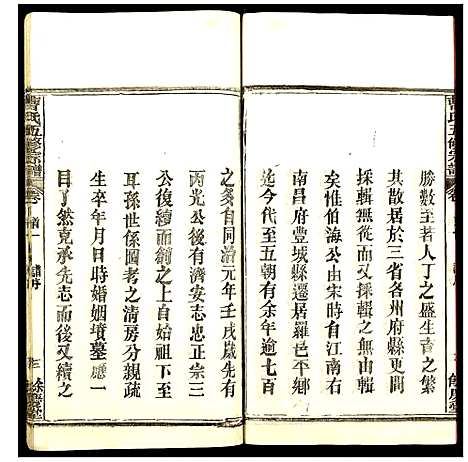 曹氏五修宗譜
勝數至若人丁之盛生育之繁
其散居於三省各州府縣更間
採輯無從而又莫可無由輯
矣惟伯海公由宋時有江南右
南昌府豐城縣遷居羅邑平鄉
迄今代至五朝有余年逾七百
之多自同治元年壬戌歲先有
丙光公後有濟安志正宗三
公復續而緝之上自始祖下至
耳孫世系圖考之清房分親疏
生卒年月日時婚姻墳墓應一
目了然克承先志而後又續之
曹氏五修宗譜
卷首一
譜序
餘慶堂